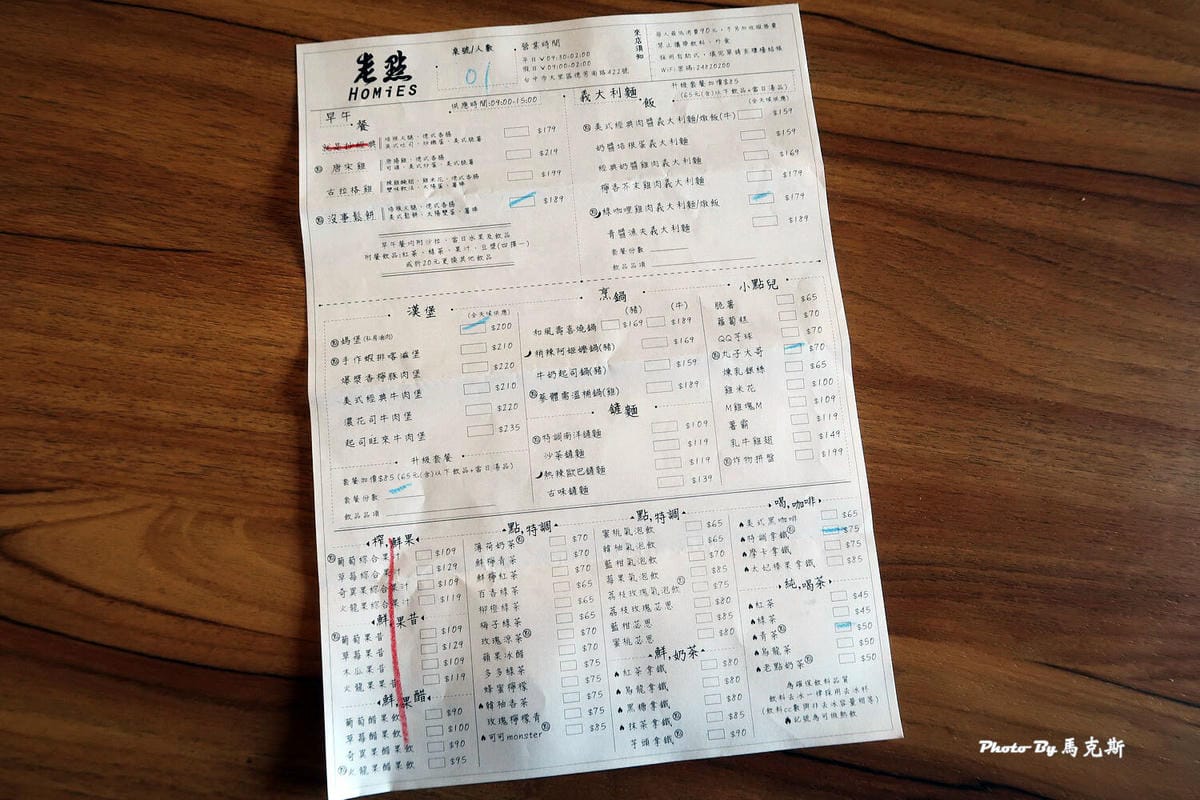 老點
HOMiES
桌號/人數
01
營業時間
平日∨09:30-02:00
假日∨09:00-02:00
台中市大里區德芳南路422號
來店須知
每人最低消費90元，不另加收服務費
禁止攜帶飲料、外食
採用自助式，填完單請至櫃檯結帳
WiFi密碼:24820200
早午餐
供應時間:09:00-15:00
$179
唐宋雞
$219
古拉格雞
$199
沒事鬆餅
$189
早午餐均附沙拉，當日水果及飲品
附餐飲品:紅茶、綠茶、果汁、豆漿(四擇一)
或折20元更換其他飲品
義大利麵飯
升級套餐加價$85
(65元(含)以下飲品+當日湯品)
(全天候供應)
美式經典肉醬義大利麵/燉飯(牛) $159
奶醬培根蛋義大利麵 $159
經典奶醬雞肉義大利麵 $169
檸香芥末雞肉義大利麵 $179
綠咖哩雞肉義大利麵/燉飯 $179
青醬漁夫義大利麵 $189
套餐份數
飲品品項
漢堡
(全天候供應)
媽堡(私房滷肉) $200
手作蝦排喀滋堡 $210
爆漿香檸豚肉堡 $220
美式經典牛肉堡 $210
濃花司牛肉堡 $220
起司旺來牛肉堡 $235
升級套餐
套餐加價$85(65元(含)以下飲品+當日湯品)
套餐份數
飲品品項
烹鍋
(豬) (牛)
和風壽喜燒鍋 $169 $189
稍辣阿妮嬤鍋(豬) $169
牛奶起司鍋(豬) $159
蔘體需溫補鍋(雞) $189
鏟麵
特調南洋鏟麵 $109
沙茶鏟麵 $119
熱辣歐巴鏟麵 $119
古味鏟麵 $139
小點兒
脆薯 $65
蘿蔔糕 $70
QQ芋球 $70
丸子大哥 $70
煉乳銀絲 $65
雞米花 $100
M雞塊M $109
薯霸 $119
乳牛雞翅 $149
炸物拼盤 $199
榨,鮮果
葡萄綜合果汁 $109
草莓綜合果汁 $129
奇異果綜合果汁 $109
火龍果綜合果汁 $119
鮮,果昔
葡萄果昔 $109
草莓果昔 $129
木瓜果昔 $109
火龍果果昔 $119
鮮,果醋
葡萄醋果飲 $90
草莓醋果飲 $100
奇異果醋果飲 $90
火龍果醋果飲 $95
點,特調
薄荷奶茶 $70
鮮檸青茶 $70
鮮檸紅茶 $70
百香綠茶 $65
柳橙綠茶 $65
梅子綠茶 $70
玫瑰涼茶 $70
蘋果冰醋 $70
多多綠茶 $75
蜂蜜檸檬 $75
韓柚香茶 $75
玫瑰檸檬青 $75
可可monster $85
點,特調
蜜桃氣泡飲 $65
韓柚氣泡飲 $65
藍柑氣泡飲 $70
莓果氣泡飲 $85
荔枝玫瑰氣泡飲 $75
荔枝玫瑰芯思 $80
藍柑芯思 $80
蜜桃芯思 $80
鮮,奶茶
紅茶拿鐵 $80
烏龍拿鐵 $80
黑糖拿鐵 $80
抹茶拿鐵 $85
芋頭拿鐵 $90
喝,咖啡
美式黑咖啡 $65
特調拿鐵 $75
摩卡拿鐵 $75
太妃榛果拿鐵 $85
純,喝茶
紅茶 $45
綠茶 $45
青茶 $50
烏龍茶 $50
老點奶茶 $50
為確保飲料品質
飲料去冰一律採用去冰杯
(飲料cc數與非去冰容量相等)
記號為可做熱飲
Photo By 馬克斯